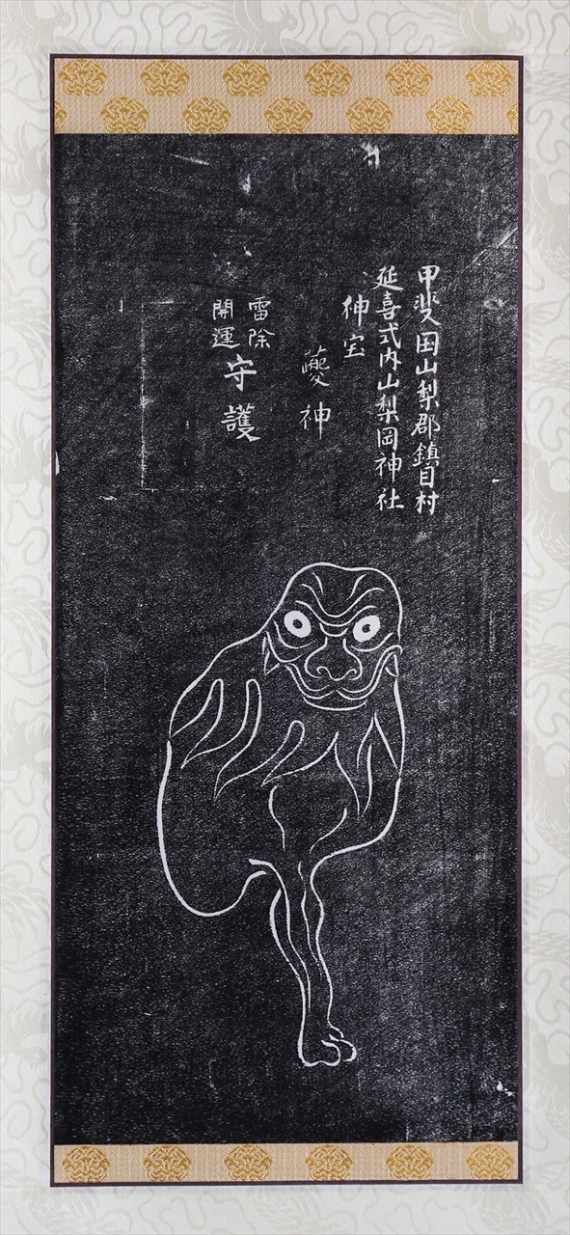 甲斐国山梨郡鎮目村
延喜式内山梨岡神社
神宝
夔神
雷除
開運
守護